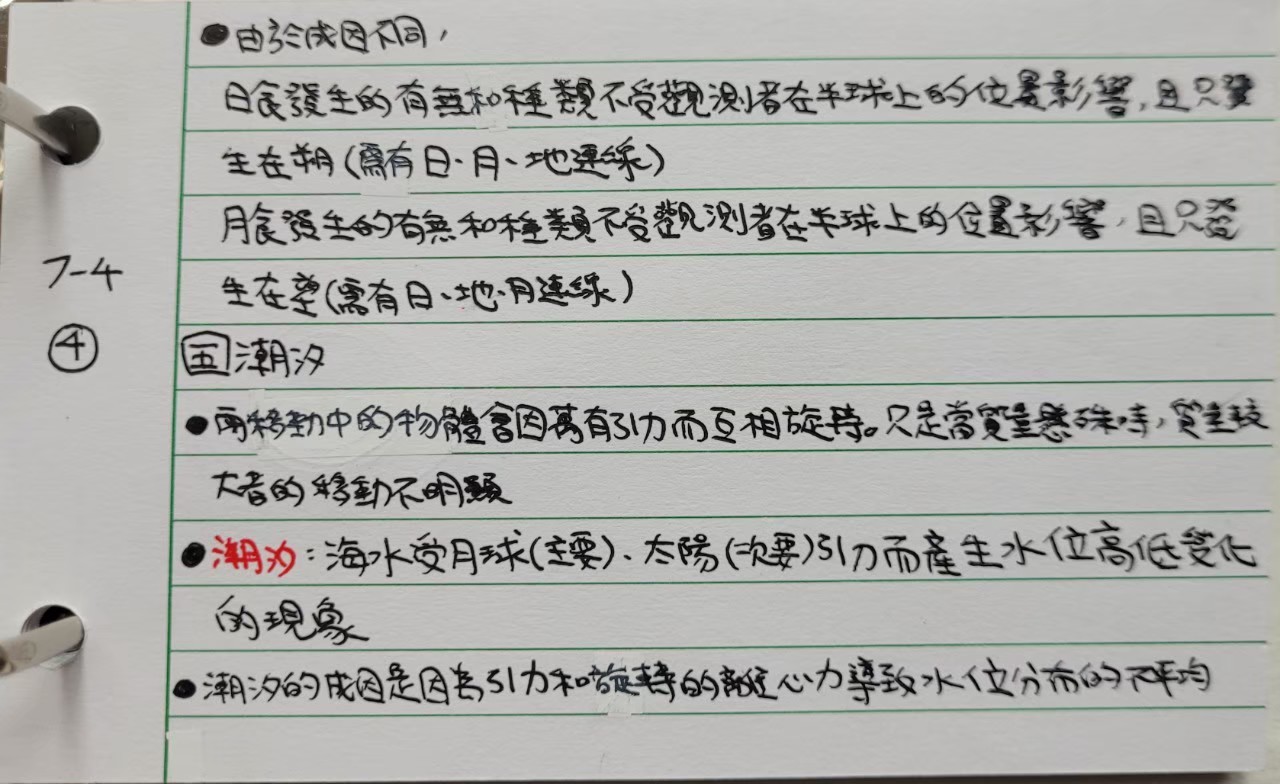 ●由於成因不同，
日食發生的有無和種類不受觀測者在半球上的位置影響，且只發
生在朔(需有日、月、地連線)
月食發生的有無和種類不受觀測者在半球上的位置影響，且只發
7-4
生在望(需有日、地、月連線)
④
五 潮汐
●兩移動中的物體會因萬有引力而互相旋轉。只是當質量懸殊時，質量較
大者的移動不明顯
●潮汐：海水受月球(主要)、太陽(次要)引力而產生水位高低變化
的現象
●潮汐的成因是因為引力和旋轉的離心力導致水位分布的不平均